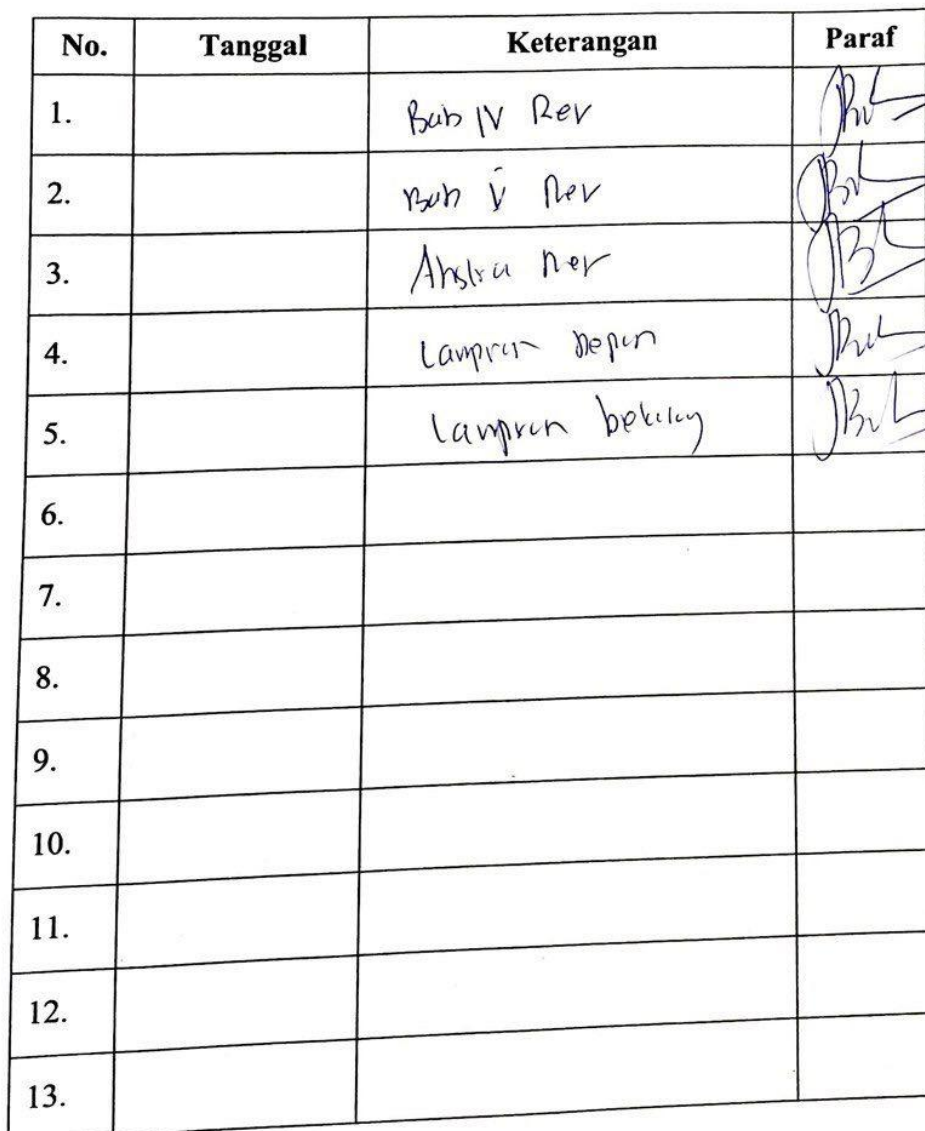 No. Tanggal Keterangan Paraf
1. Bab IV Rev
2. Bab V Rev
3. Abstra Rev
4. Lampran Depan
5. Lampran
6.
7.
8.
9.
10.
11.
12.
13.